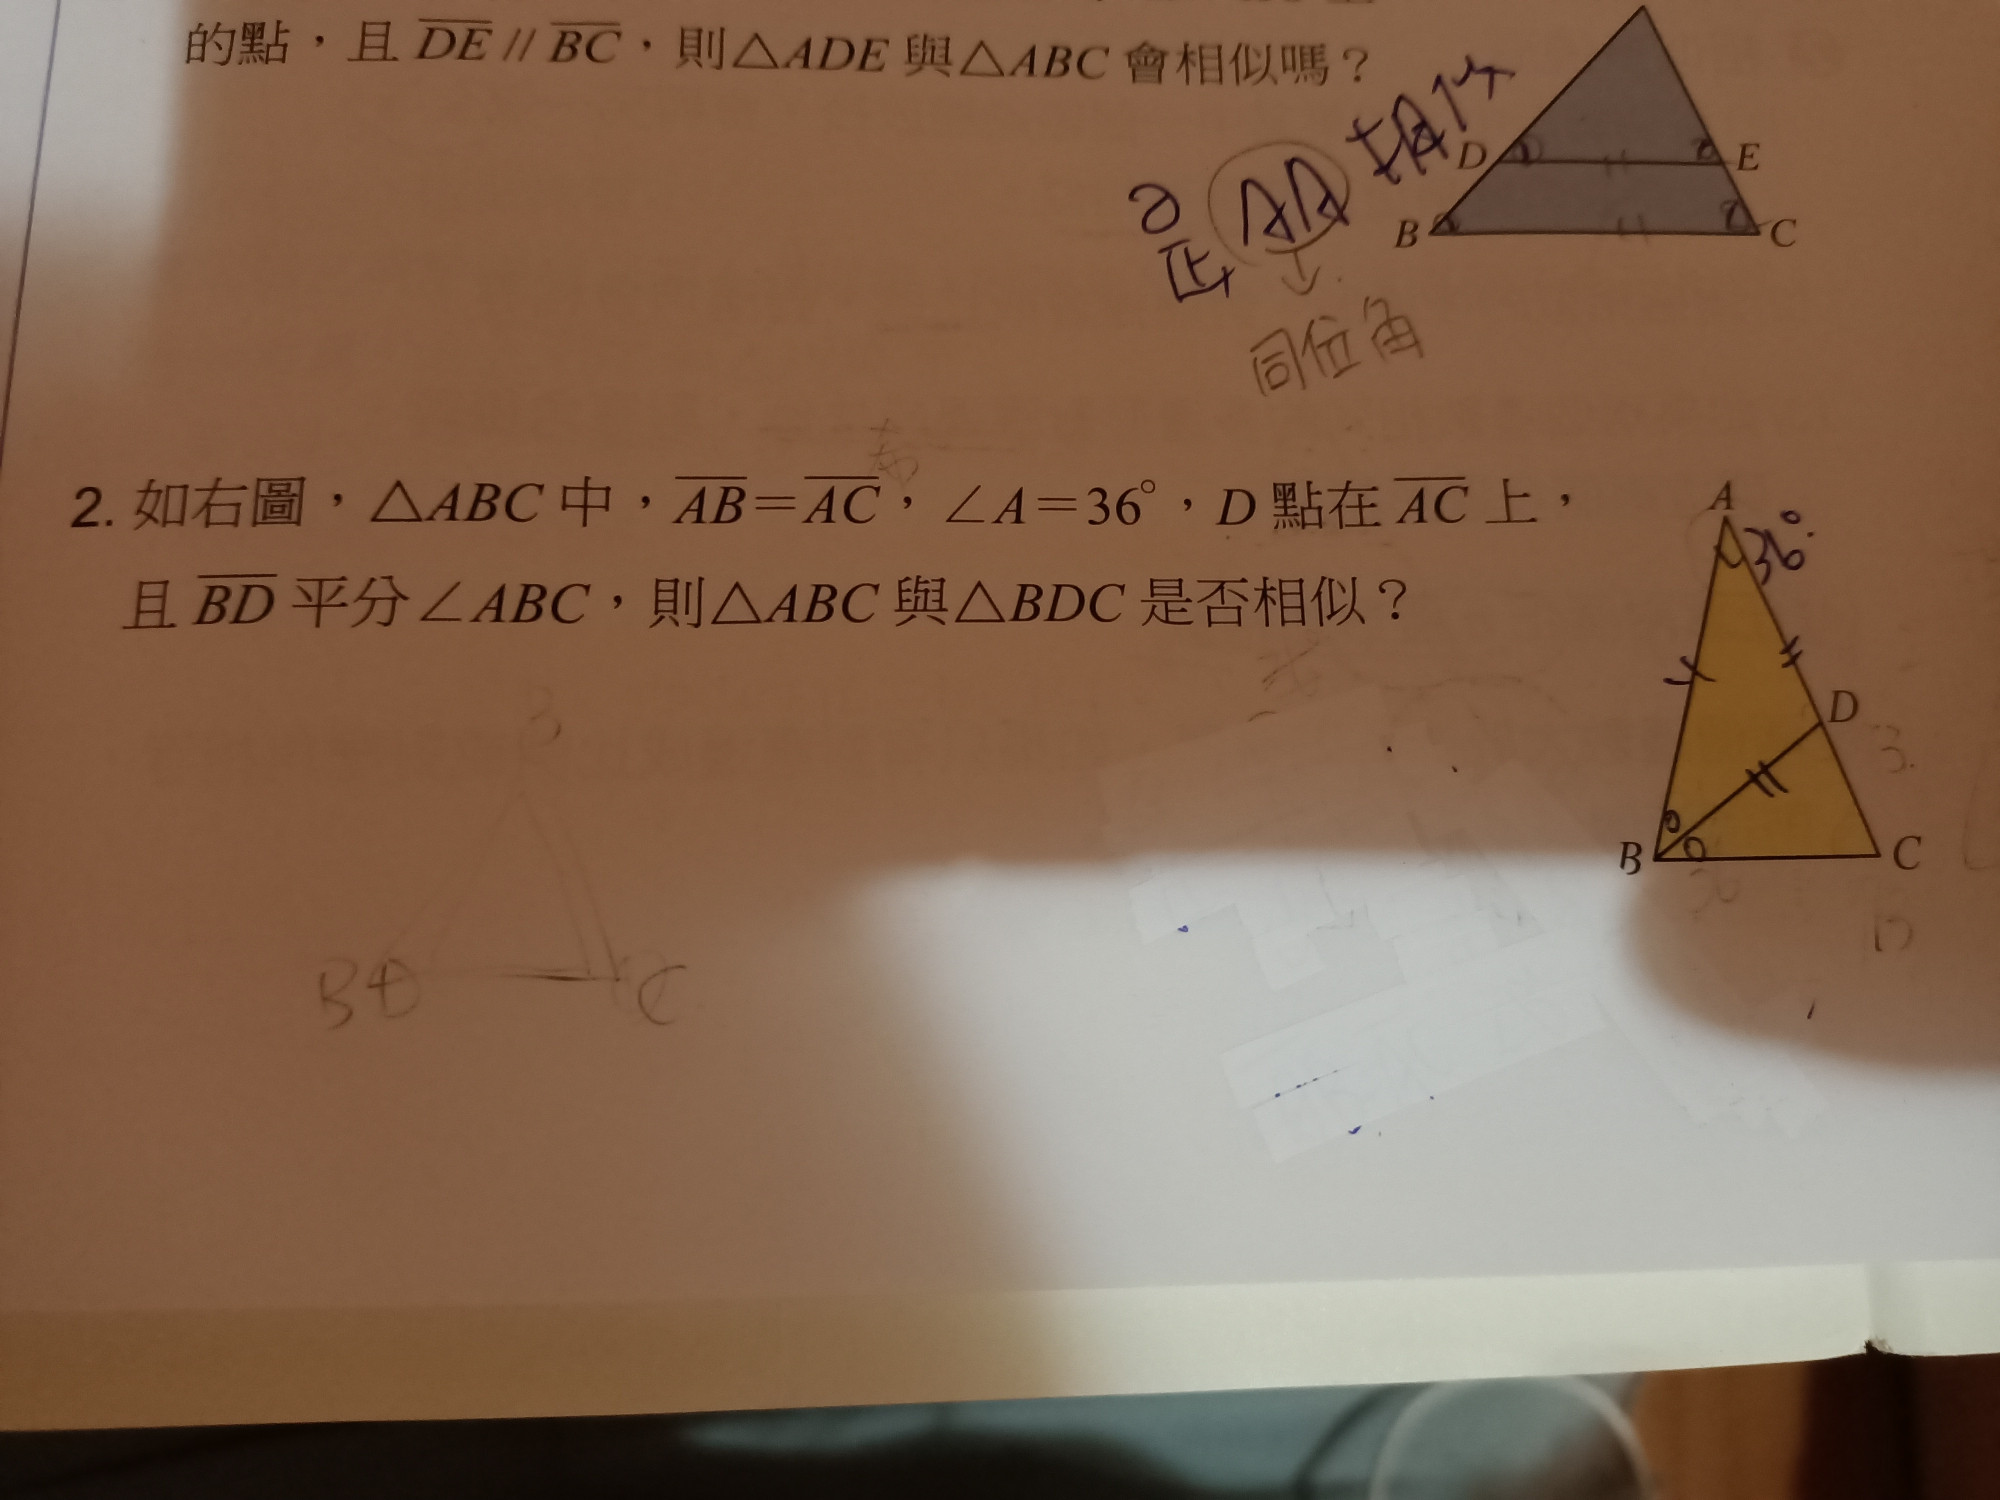 的點，且 DE // BC，則△ADE 與△ABC 會相似嗎？
D
E
B
C
是 AA 相似
同位角
2. 如右圖，△ABC 中，AB＝AC，∠A＝36°，D 點在 AC 上，
且 BD 平分∠ABC，則△ABC 與△BDC 是否相似？
A
36°
D
B
C
B
C